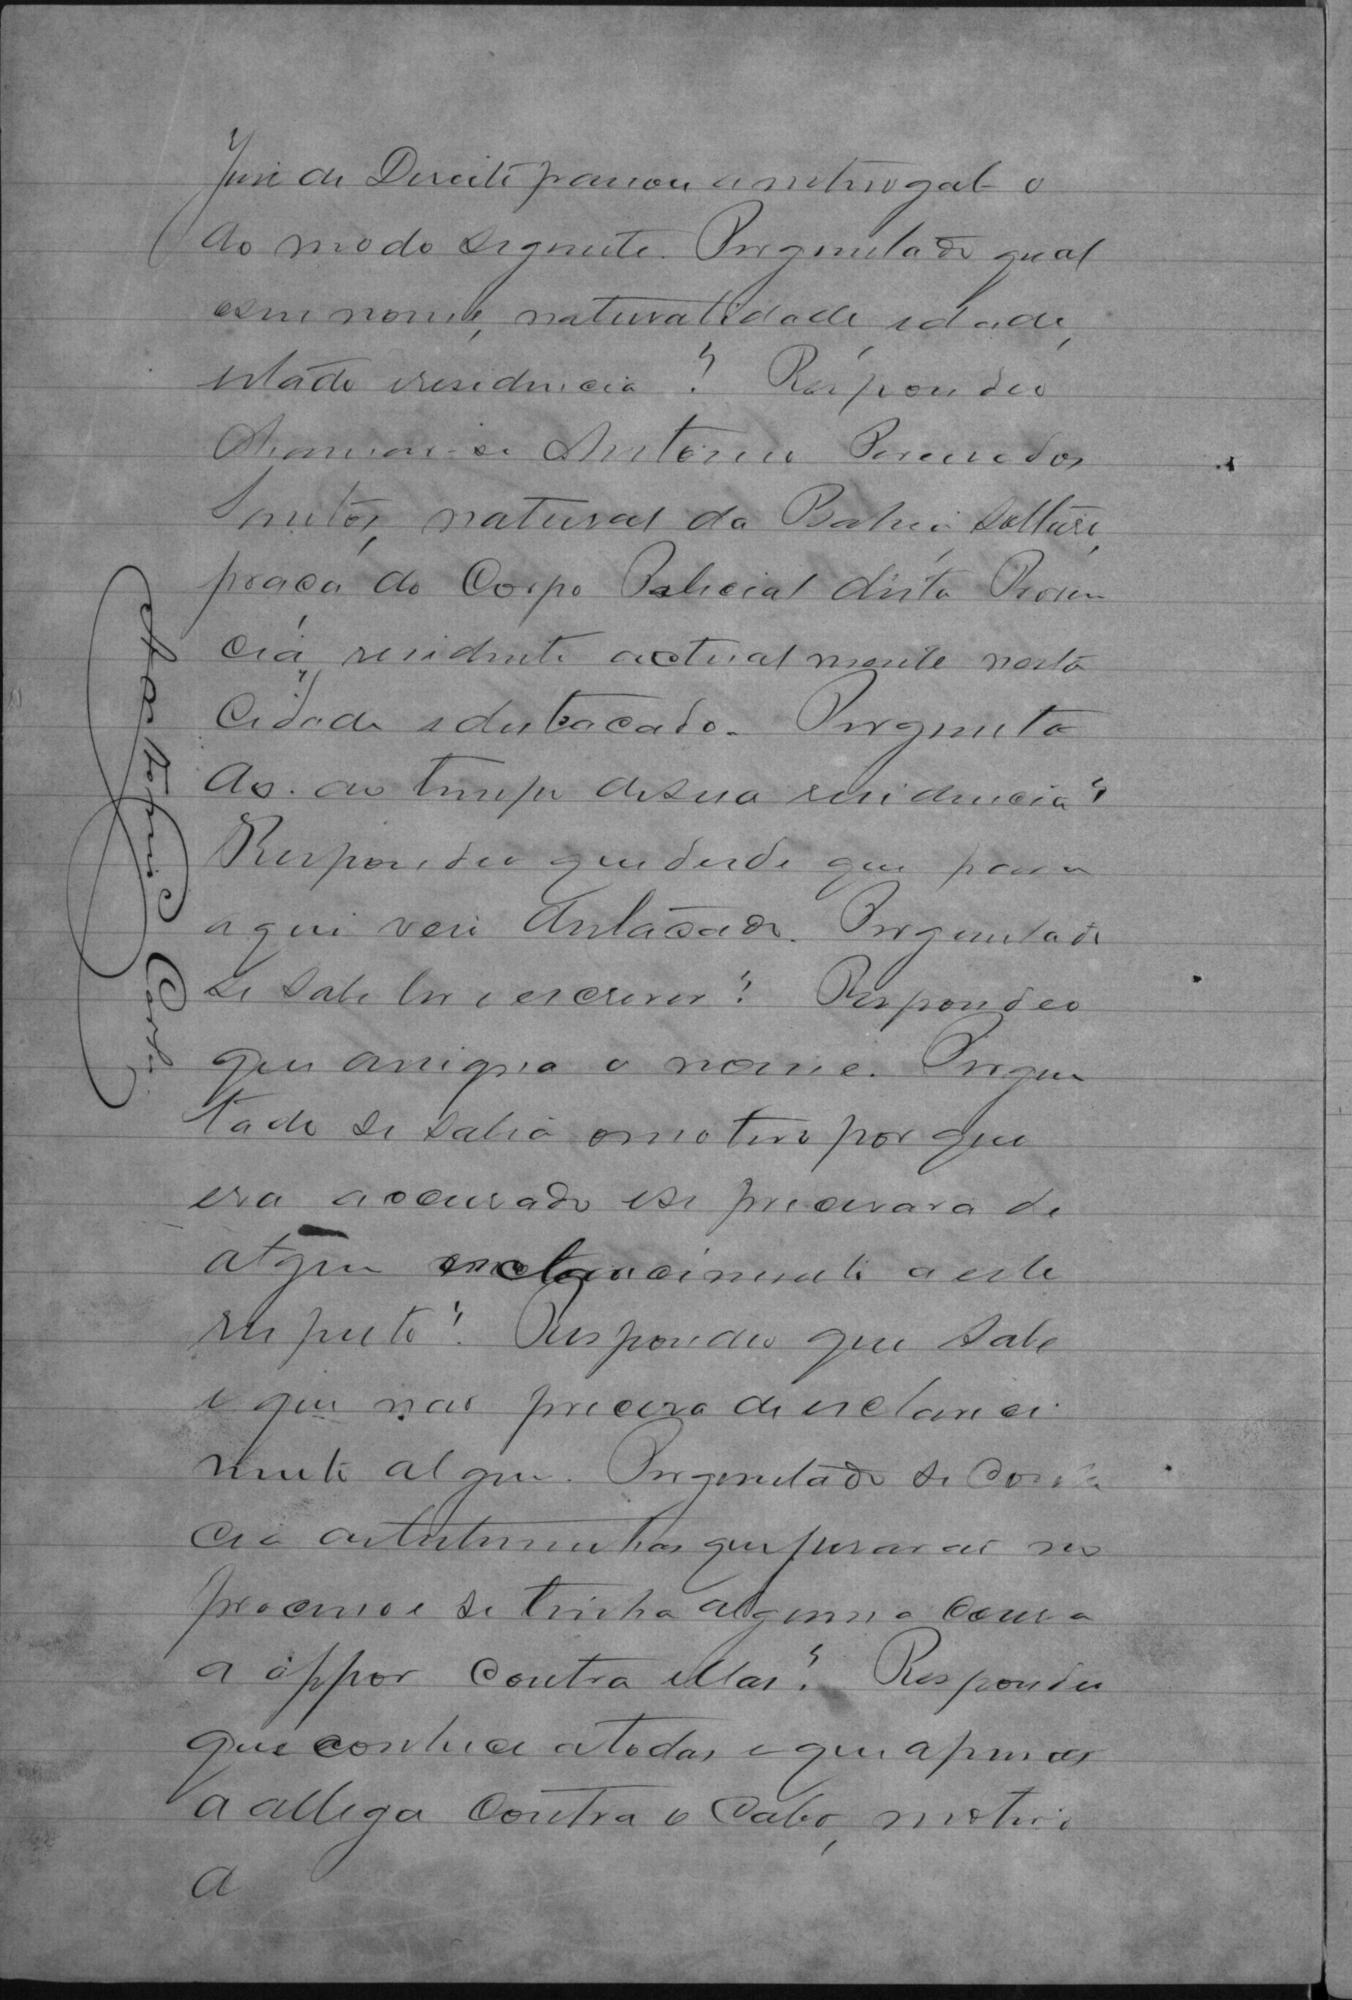 Juis de Direito passou a interrogal-o
do modo seguinte. Preguntado qual
o seu nome, naturalidade, edade,
estado e residencia? Respondeo
chamar-se Antonio Pereira dos
Santos, natural da Bahia, solteiro,
praça do Corpo Policial desta Provin
cia, residente actualmente nesta
Cidade e destacado. Pregunta
do. ao tempo de sua residencia?
Respondeo que desde que para
aqui veio destacado. Preguntado
se sabe ler e escrever? Respondeo
que assigna o nome. Pregun
tado se sabia o motivo por que
era accusado e se precisava de
algum esclarecimento a este
respeito? Respondeo que sabe
e que nao precisa de esclareci
mento algum. Preguntado se conhe
cia as testemunhas que juraram no
processo e se tinha alguma cousa
a oppor contra ellas? Respondeo
que conhece a todas e que apenas
a allega contra o Cabo, motivo
a
Antonio Costa